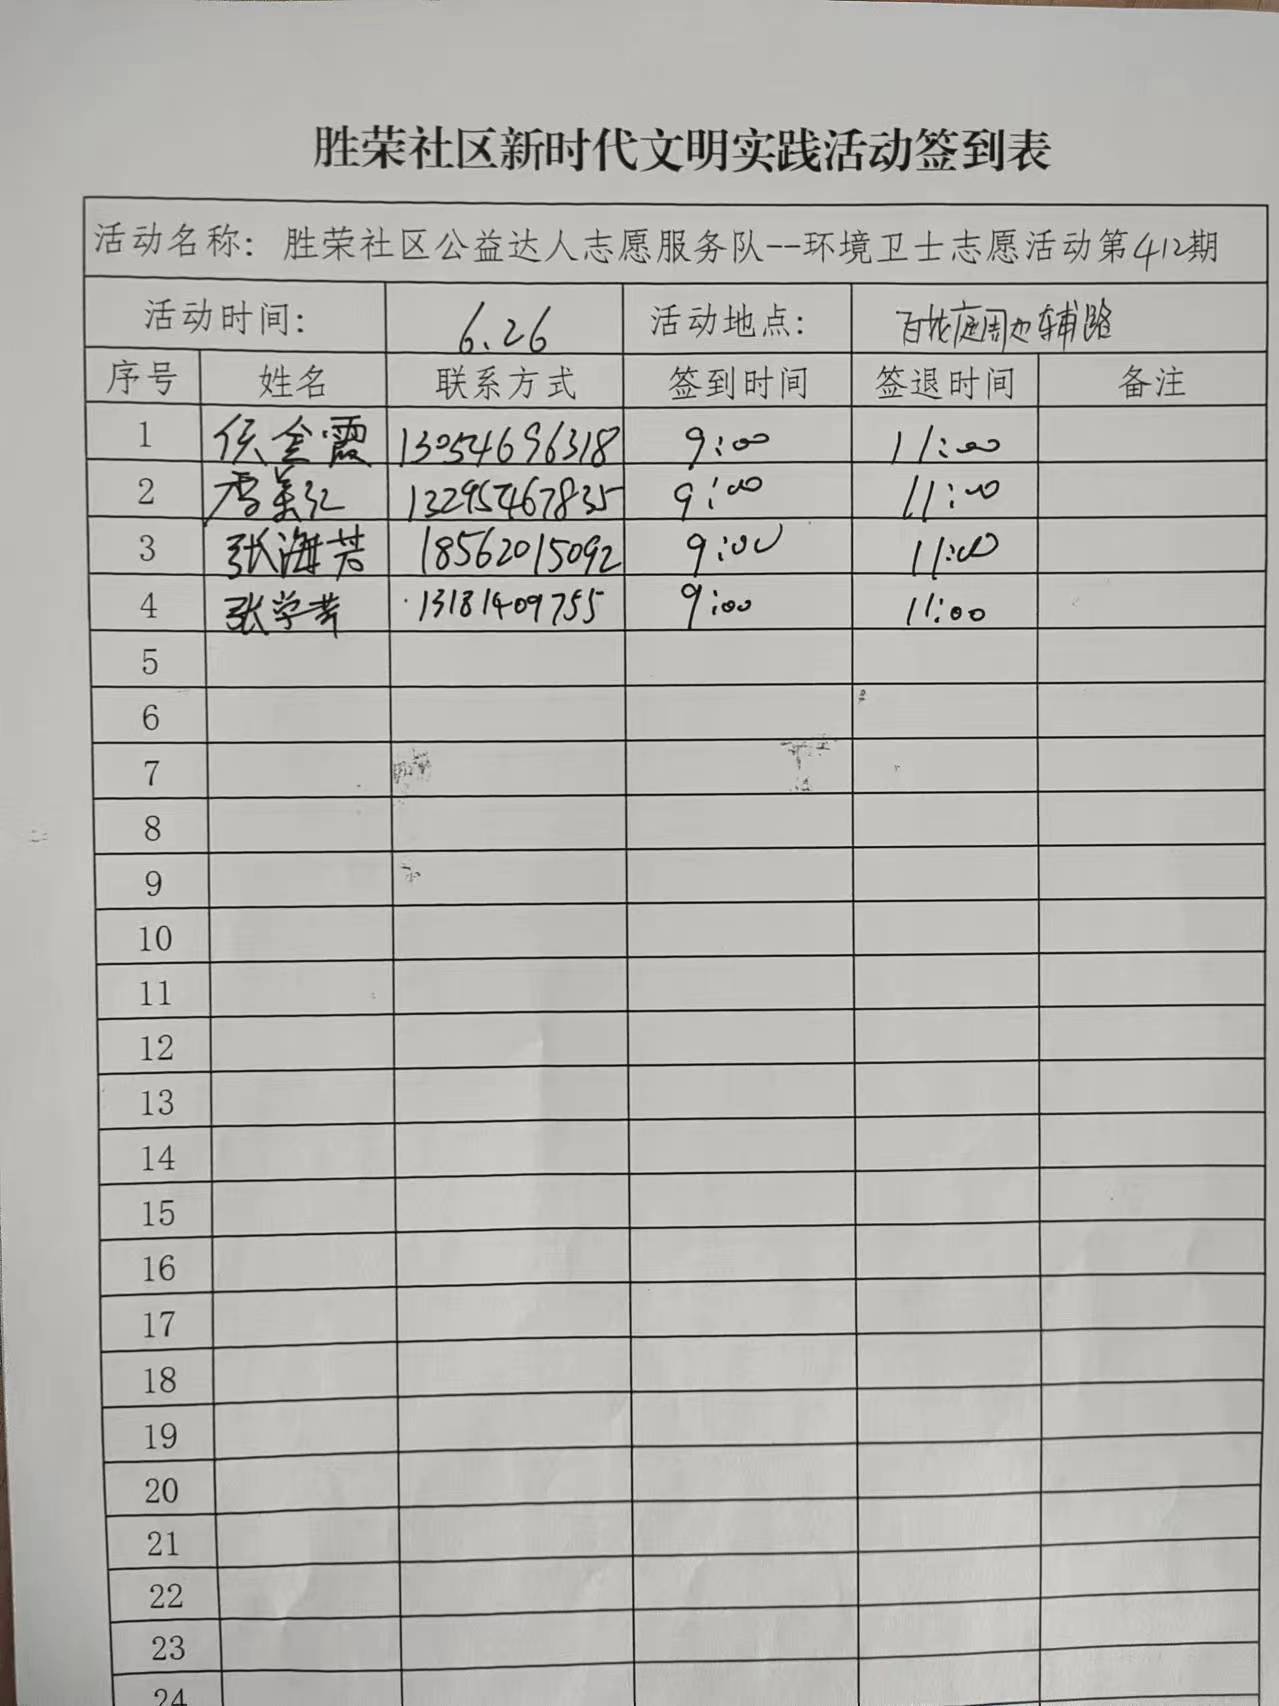 胜荣社区新时代文明实践活动签到表
活动名称：胜荣社区公益达人志愿服务队--环境卫士志愿活动第412期
活动时间： 6.26 活动地点： 百花庭周边辅路
序号 姓名 联系方式 签到时间 签退时间 备注
1 侯金霞 13054696318 9:00 11:00
2 李美红 13295467835 9:00 11:00
3 张海芳 18562015092 9:00 11:00
4 张学芳 13181409755 9:00 11:00
5
6
7
8
9
10
11
12
13
14
15
16
17
18
19
20
21
22
23
24